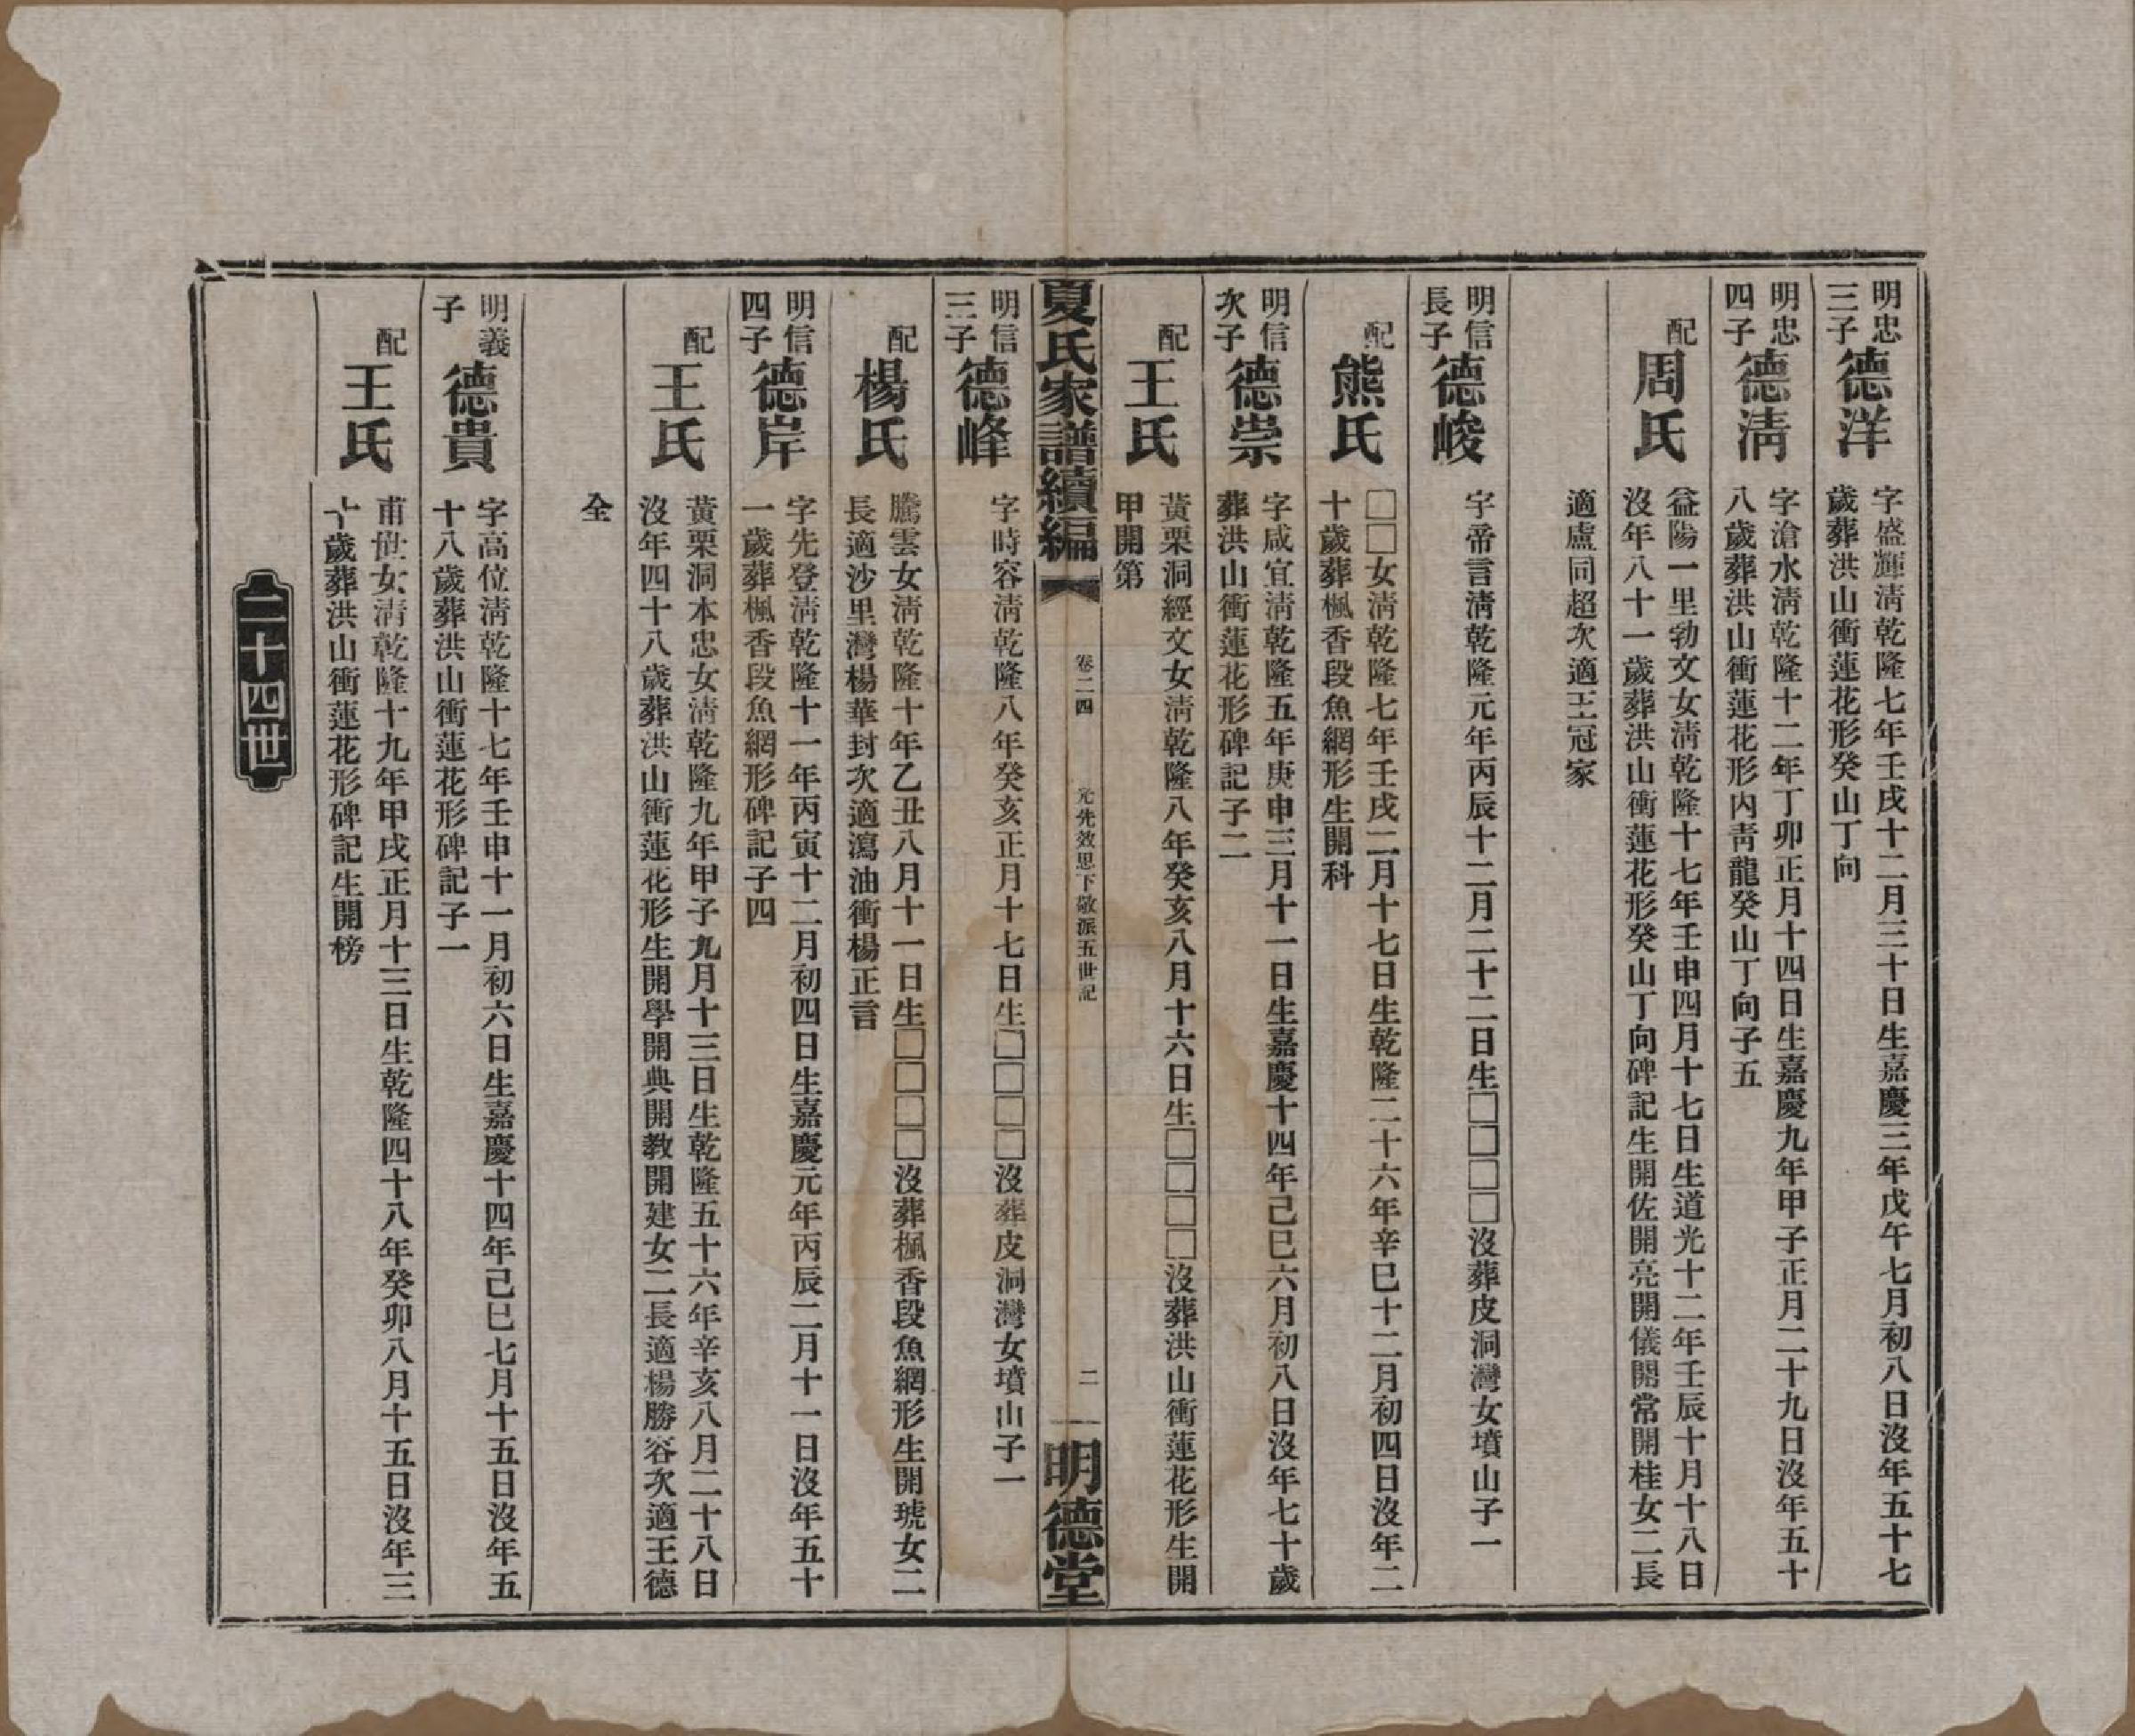 明忠
三子
德洋
字盛輝淸乾隆七年壬戌十二月三十日生嘉慶三年戊午七月初八日沒年五十七
歲葬洪山衝蓮花形癸山丁向
明忠
四子
德淸
字滄水淸乾隆十二年丁卯正月十四日生嘉慶九年甲子正月二十九日沒年五十
八歲葬洪山衝蓮花形內靑龍癸山丁向子五
配
周氏
益陽一里勃文女淸乾隆十七年壬申四月十七日生道光十二年壬辰十月十八日
沒年八十一歲葬洪山衝蓮花形癸山丁向碑記生開佐開亮開儀開常開桂女二長
適盧同超次適王冠家
明信
長子
德峻
字帝言淸乾隆元年丙辰十二月二十二日生□□□□沒葬皮洞灣女墳山子一
配
熊氏
□□女淸乾隆七年壬戌二月十七日生乾隆二十六年辛巳十二月初四日沒年二
十歲葬楓香段魚網形生開科
明信
次子
德崇
字咸宜淸乾隆五年庚申三月十一日生嘉慶十四年己巳六月初八日沒年七十歲
葬洪山衝蓮花形碑記子二
配
王氏
黃栗洞經文女淸乾隆八年癸亥八月十六日生□□□□沒葬洪山衝蓮花形生開
甲開第
夏氏家譜續編
卷二四
元先效思下敬派五世記
二
明德堂
明信
三子
德峰
字時容淸乾隆八年癸亥正月十七日生□□□□沒葬皮洞灣女墳山子一
配
楊氏
騰雲女淸乾隆十年乙丑八月十一日生□□□□沒葬楓香段魚網形生開琥女二
長適沙里灣楊華封次適瀉油衝楊正言
明信
四子
德岸
字先登淸乾隆十一年丙寅十二月初四日生嘉慶元年丙辰二月十一日沒年五十
一歲葬楓香段魚網形碑記子四
配
王氏
黃栗洞本忠女淸乾隆九年甲子九月十三日生乾隆五十六年辛亥八月二十八日
沒年四十八歲葬洪山衝蓮花形生開學開典開教開建女二長適楊勝容次適王德
全
明義
子
德貴
字高位淸乾隆十七年壬申十一月初六日生嘉慶十四年己巳七月十五日沒年五
十八歲葬洪山衝蓮花形碑記子一
配
王氏
甫世女淸乾隆十九年甲戌正月十三日生乾隆四十八年癸卯八月十五日沒年三
十歲葬洪山衝蓮花形碑記生開榜
二十四世